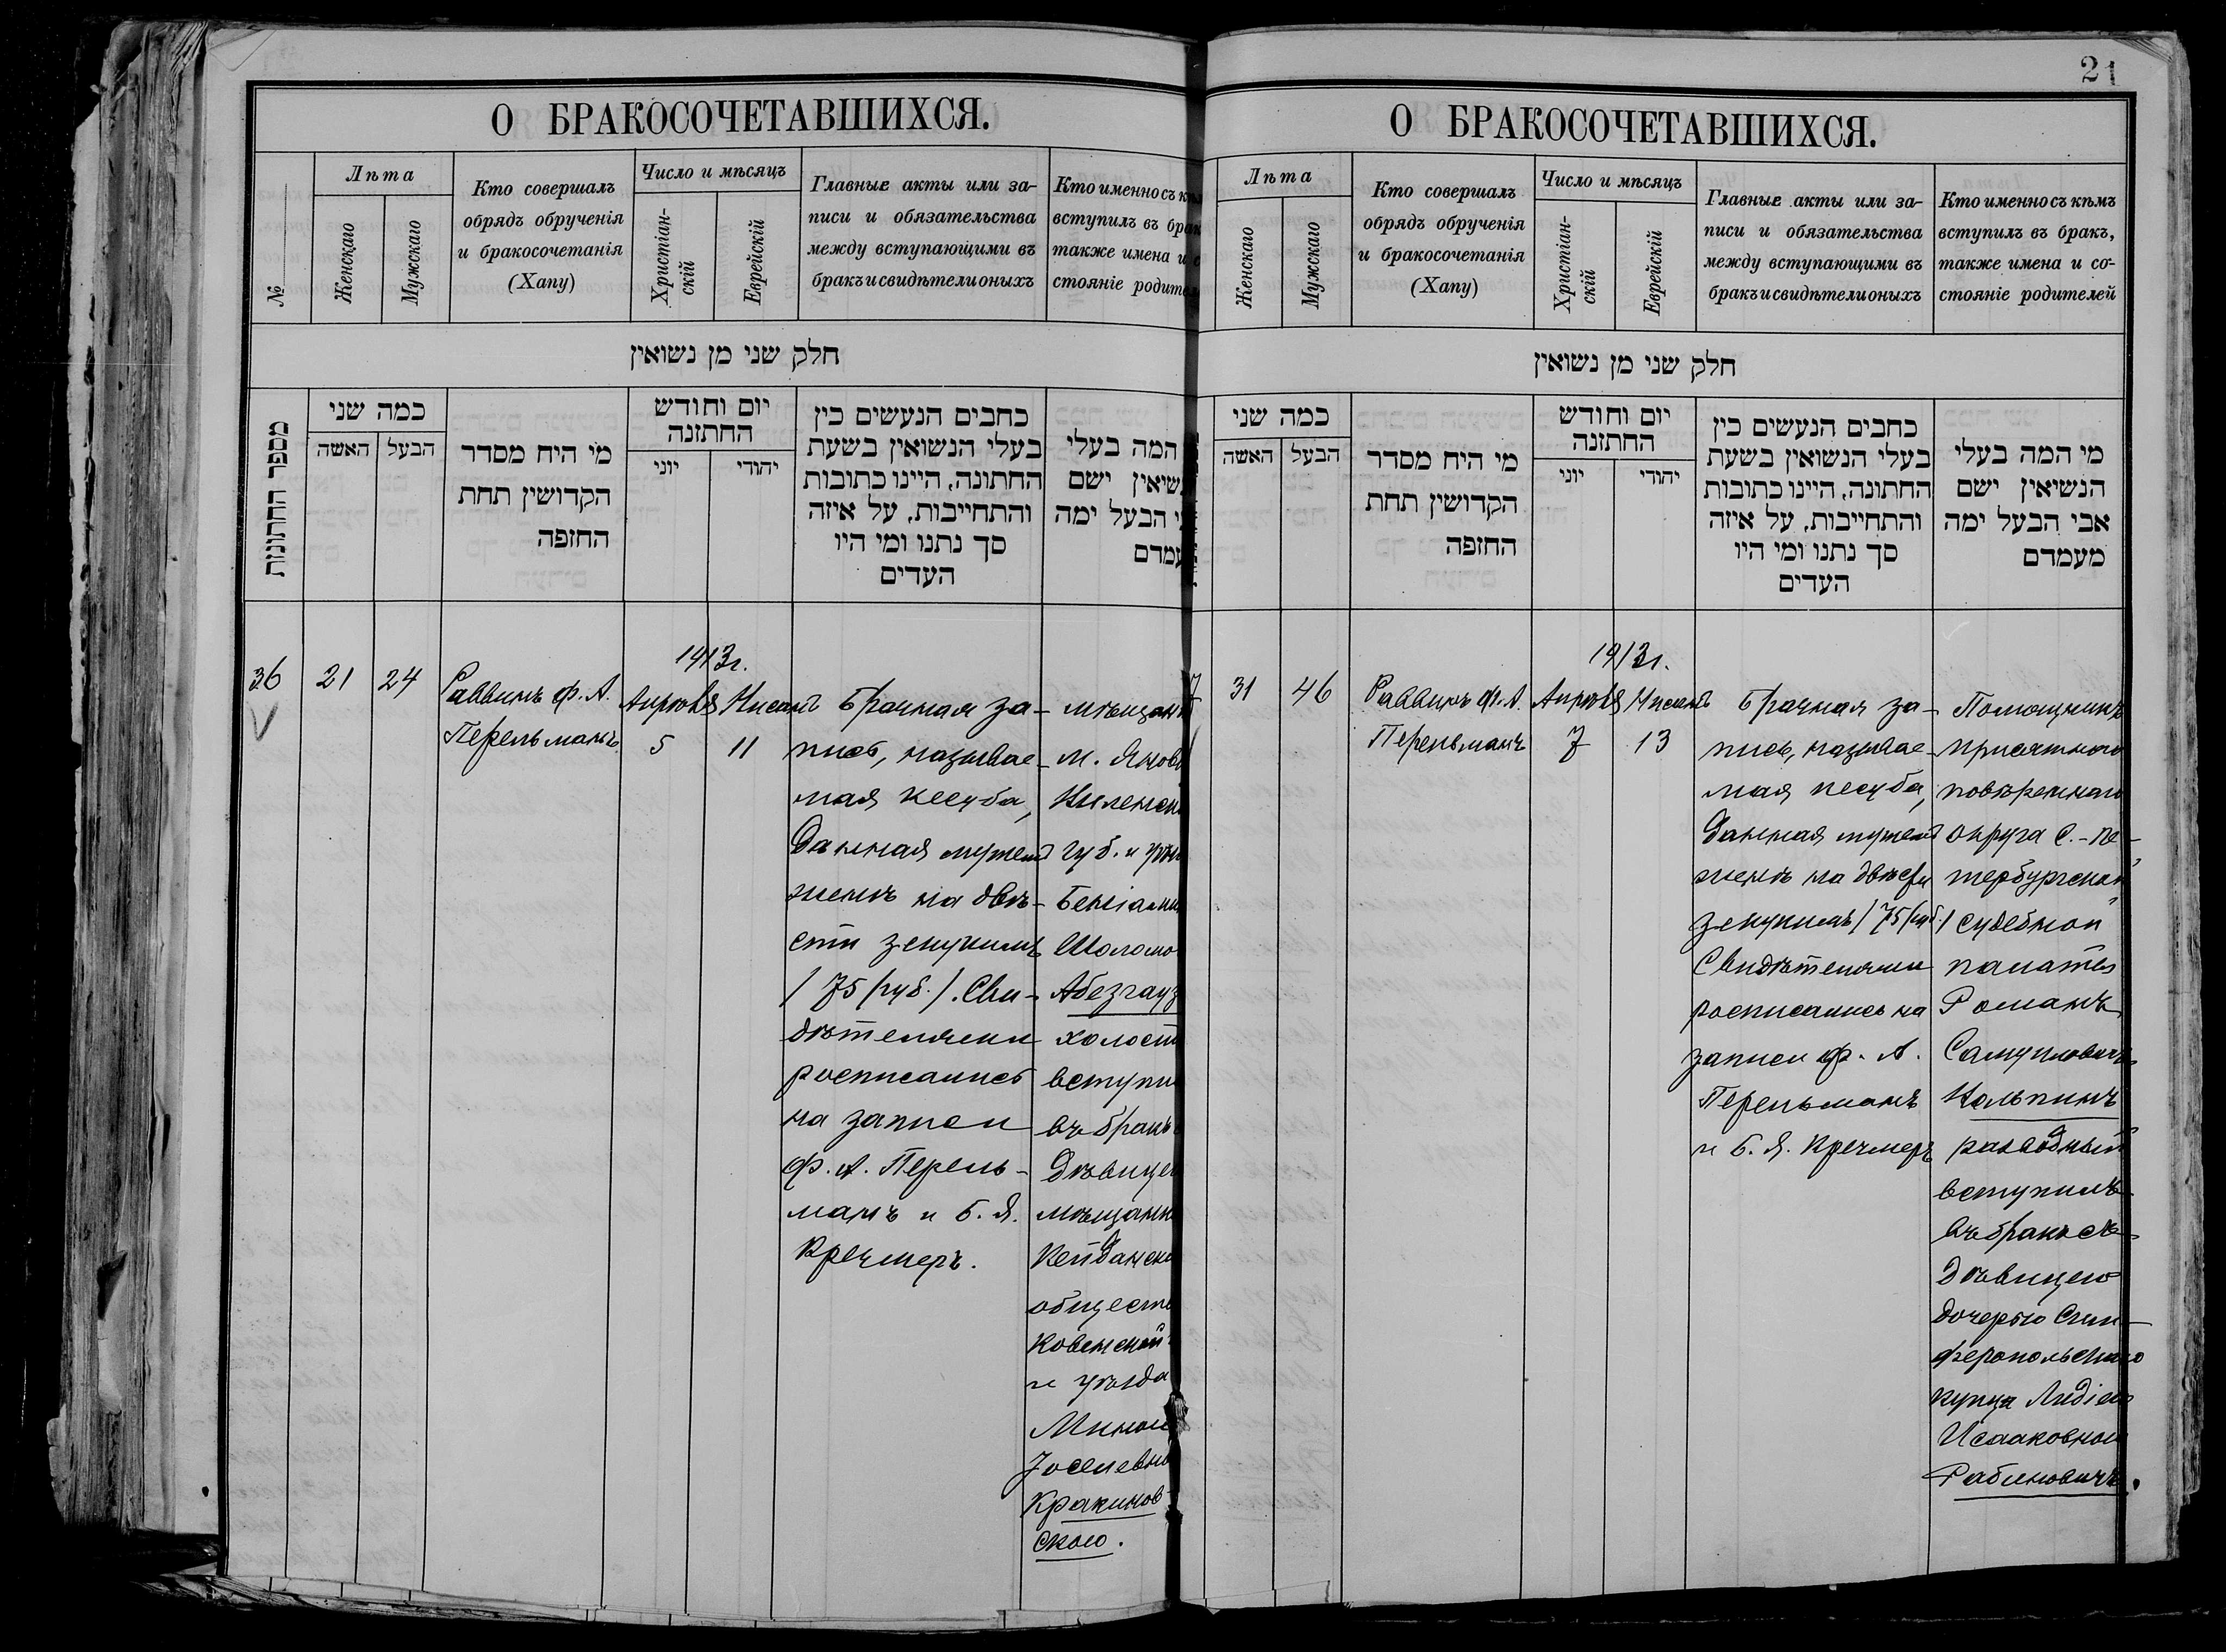 О БРАКОСОЧЕТАВШИХСЯ.
№
Лѣта
Женскаго
Мужскаго
Кто совершалъ
обрядъ обрученія
и бракосочетанія
(Хапу)
Число и мѣсяцъ
Христіан-
скій
Еврейскій
Главные акты или за-
писи и обязательства
между вступающими въ
бракъ и свидѣтели оныхъ
Кто именно съ
вступилъ въ
также имена и
стояніе
חלק שני מן נשואין
מספר החתונות
כמה שני
האשה
הבעל
מי היח מסדר
הקדושין תחת
החזפה
יום וחודש
החתזנה
יוני
יהודי
כחבים הנעשים כין
בעלי הנשואין בשעת
החתונה, היינו כתובות
והתחייבות, על איזה
סך נתנו ומי היו
העדים
המה בעלי
ישם
הבעל ימה
36
21
24
Раввинъ Ф. А.
Перельманъ
1913 г.
Апрѣля
5
Нисанъ
11
Брачная за-
пись, называе-
мая кесуба,
данная мужемъ
женѣ на двѣ-
сти зекукимъ
/75 руб./. Сви-
дѣтелями
росписались
на записи
Ф. А. Перель-
манъ и Б. Я.
Кречмеръ.
м.
губ. и
въ бракъ
и уѣзда
Кракинов-
скою.
21
О БРАКОСОЧЕТАВШИХСЯ.
Лѣта
Женскаго
Мужскаго
Кто совершалъ
обрядъ обрученія
и бракосочетанія
(Хапу)
Число и мѣсяцъ
Христіан-
скій
Еврейскій
Главные акты или за-
писи и обязательства
между вступающими въ
бракъ и свидѣтели оныхъ
Кто именно съ кѣмъ
вступилъ въ бракъ,
также имена и со-
стояніе родителей
חלק שני מן נשואין
כמה שני
האשה
הבעל
מי היח מסדר
הקדושין תחת
החזפה
יום וחודש
החתזנה
יוני
יהודי
כחבים הנעשים כין
בעלי הנשואין בשעת
החתונה, היינו כתובות
והתחייבות, על איזה
סך נתנו ומי היו
העדים
מי המה בעלי
הנשיאין ישם
אבי הבעל ימה
מעמדם
7
31
46
Раввинъ Ф. А.
Перельманъ
1913 г.
Апрѣля
7
Нисанъ
13
Брачная за-
пись, называе-
мая кесуба,
данная мужемъ
женѣ на двѣсти
зекукимъ /75 руб./
Свидѣтелями
росписались на
записи Ф. А.
Перельманъ
и Б. Я. Кречмеръ
Помощникъ
присяжнаго
повѣреннаго
округа С.-Пе-
тербургской
судебной
палаты
Романъ
Самуиловичъ
Кальпинъ
разводный
вступилъ
въ бракъ съ
дѣвицею
дочерью Сим-
феропольскаго
купца Лидіею
Исааковною
Рабиновичъ.